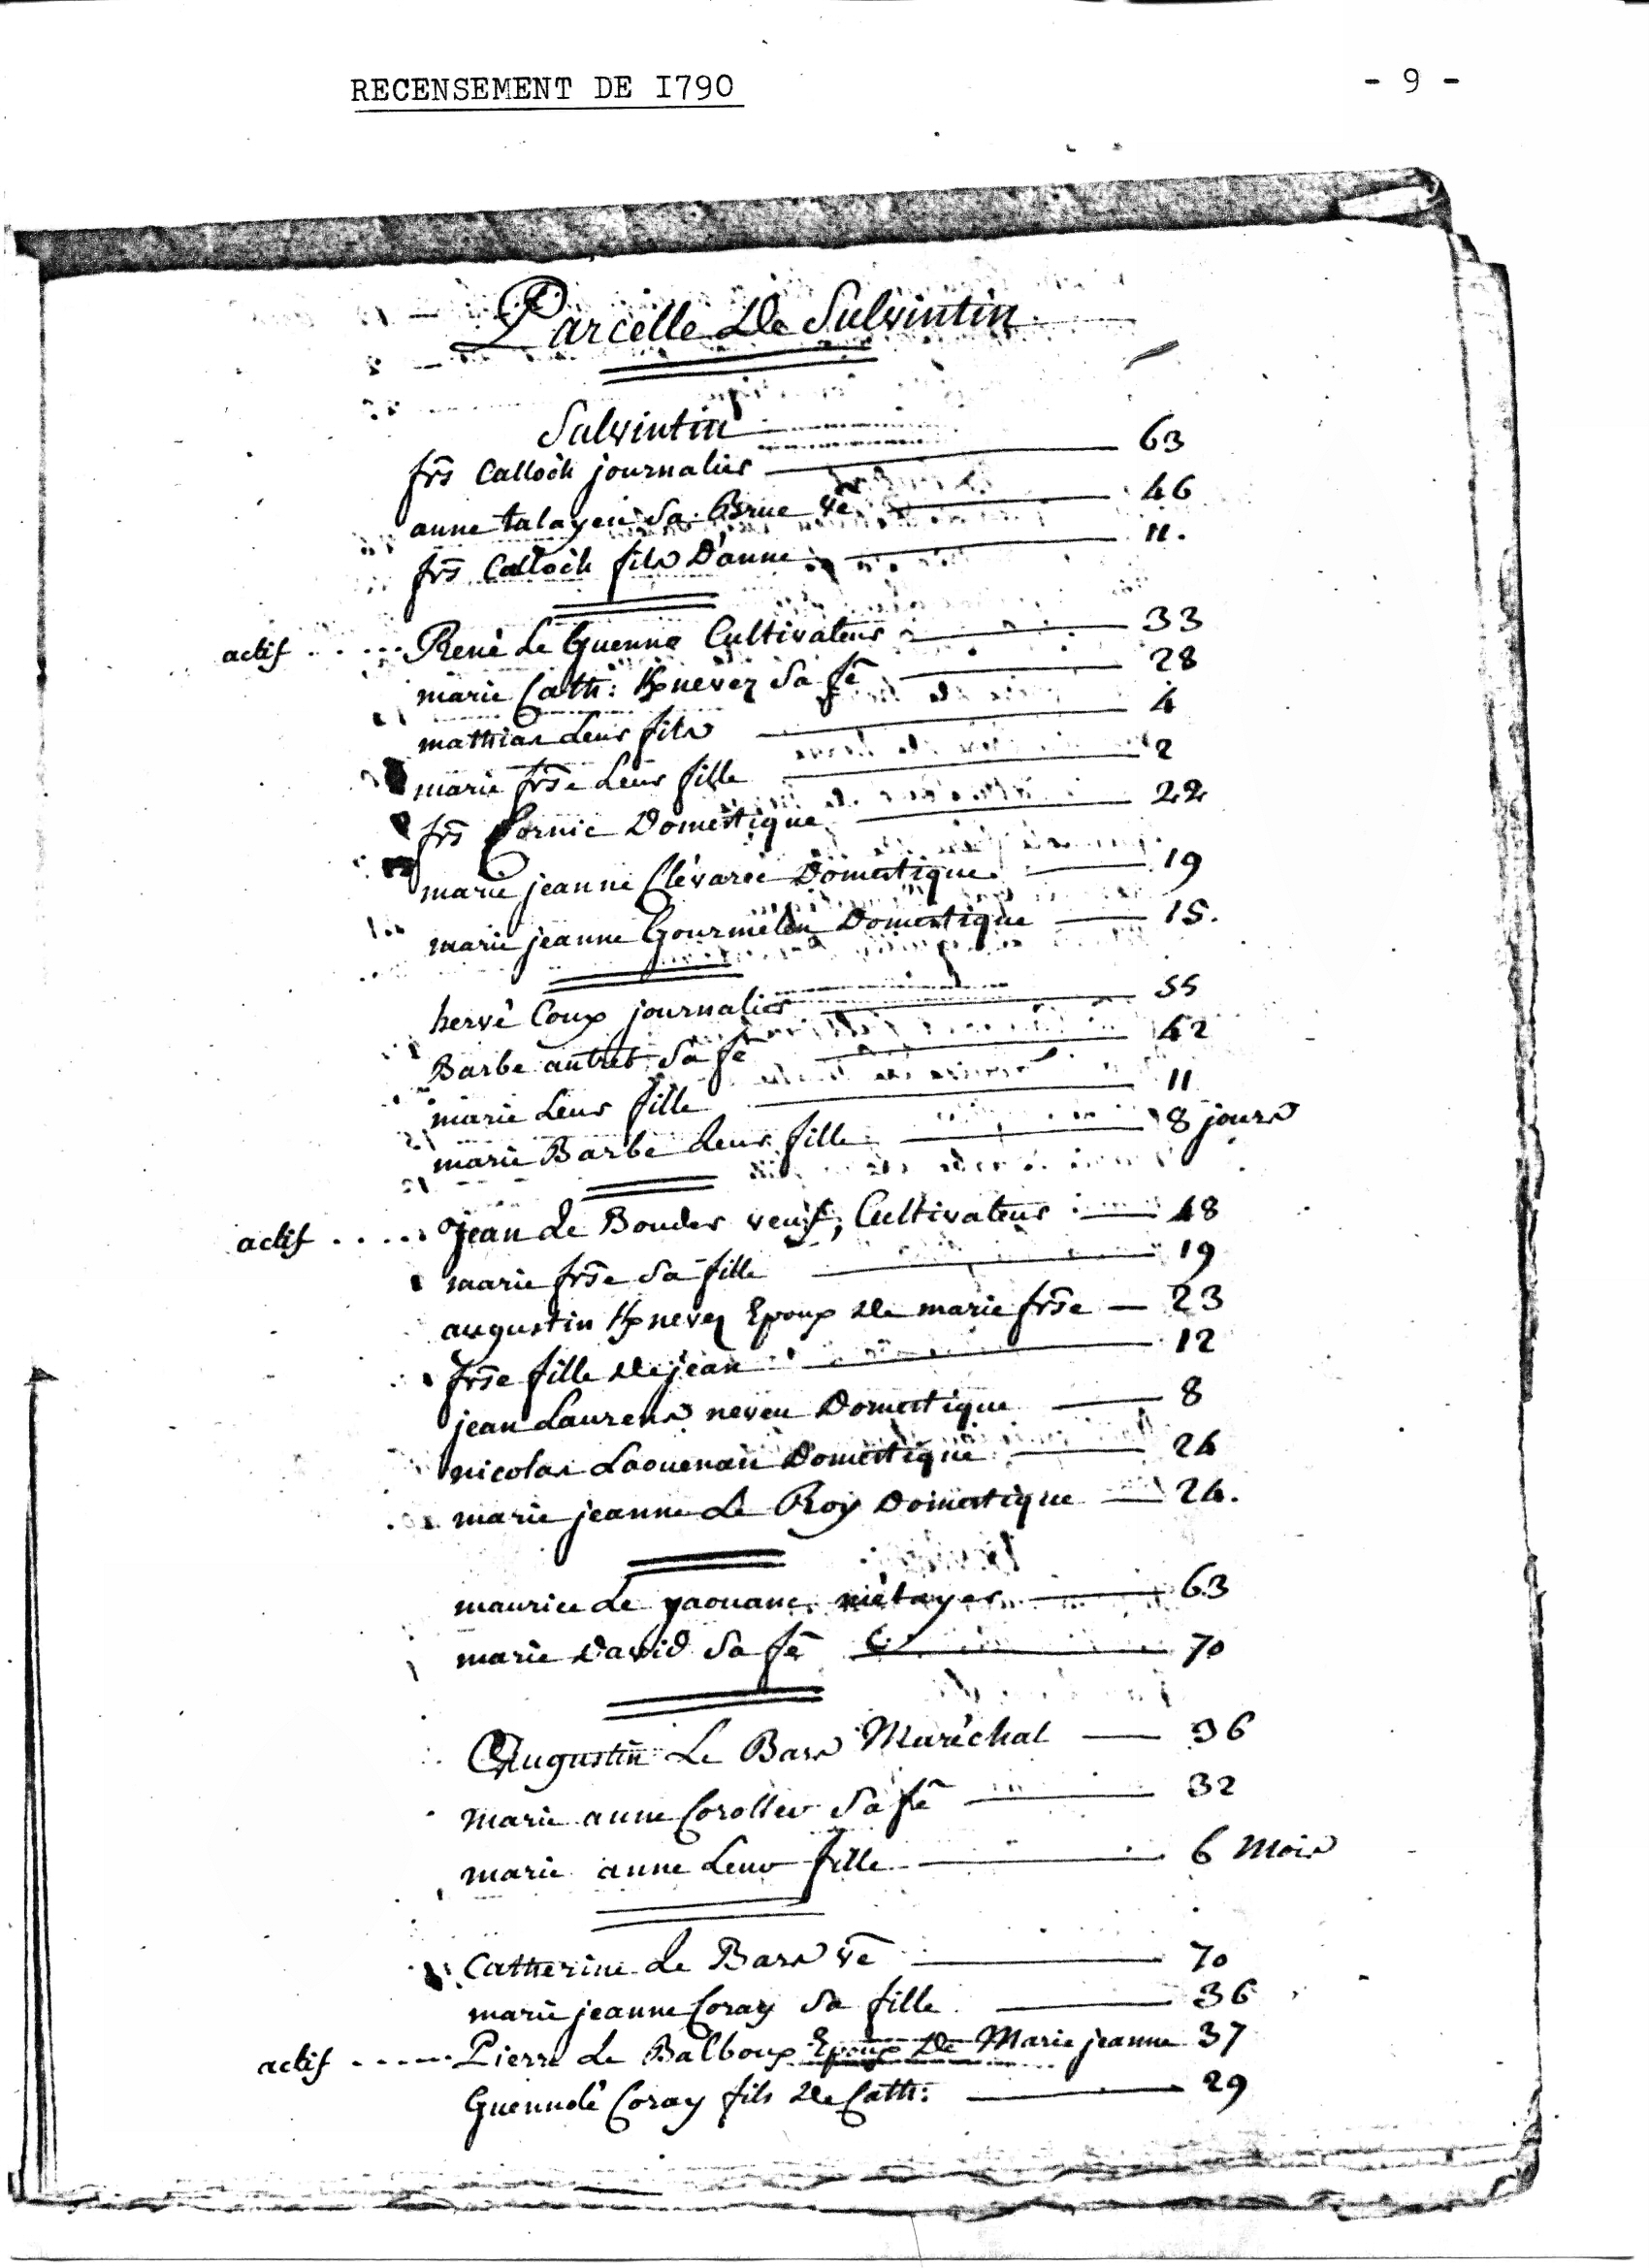 RECENSEMENT DE I790
- 9 -
Parcelle De Sulvintin
Sulvintin
frs Calloch journalier 63
anne talayen Sa Brue ve 46
frs Calloch fils D'anne 11.
actif ..... René Le Guenno Cultivateur 33
marie Cath: Kpnevez Sa fe 28
mathias Leur fils 4
marie frse Leur fille 2
frs Cornic Domestique 22
marie jeanne Clévarec Domestique 19
marie jeanne Gourmelen Domestique 15.
hervé Coux journalier 55
Barbe autret Sa fe 42
marie Leur fille 11
marie Barbe Leur fille 8 jours
actif ..... jean Le Bouder veuf, Cultivateur 48
marie frse Sa fille 19
augustin Kpnevez Epoux De marie frse 23
frse fille De jean 12
jean Laurens neveu Domestique 8
nicolas Laouenan Domestique 24
marie jeanne Le Roy Domestique 24.
maurice Le yaouanc métayer 63
marie David Sa fe 70
Augustin Le Bars Maréchal 36
Marie anne Coroller Sa fe 32
marie anne Leur fille 6 Mois
Catherine Le Bars ve 70
marie jeanne Coray Sa fille 36
actif ..... Pierre Le Balboux Epoux De Marie jeanne 37
Guennolé Coray fils De Cath: 29